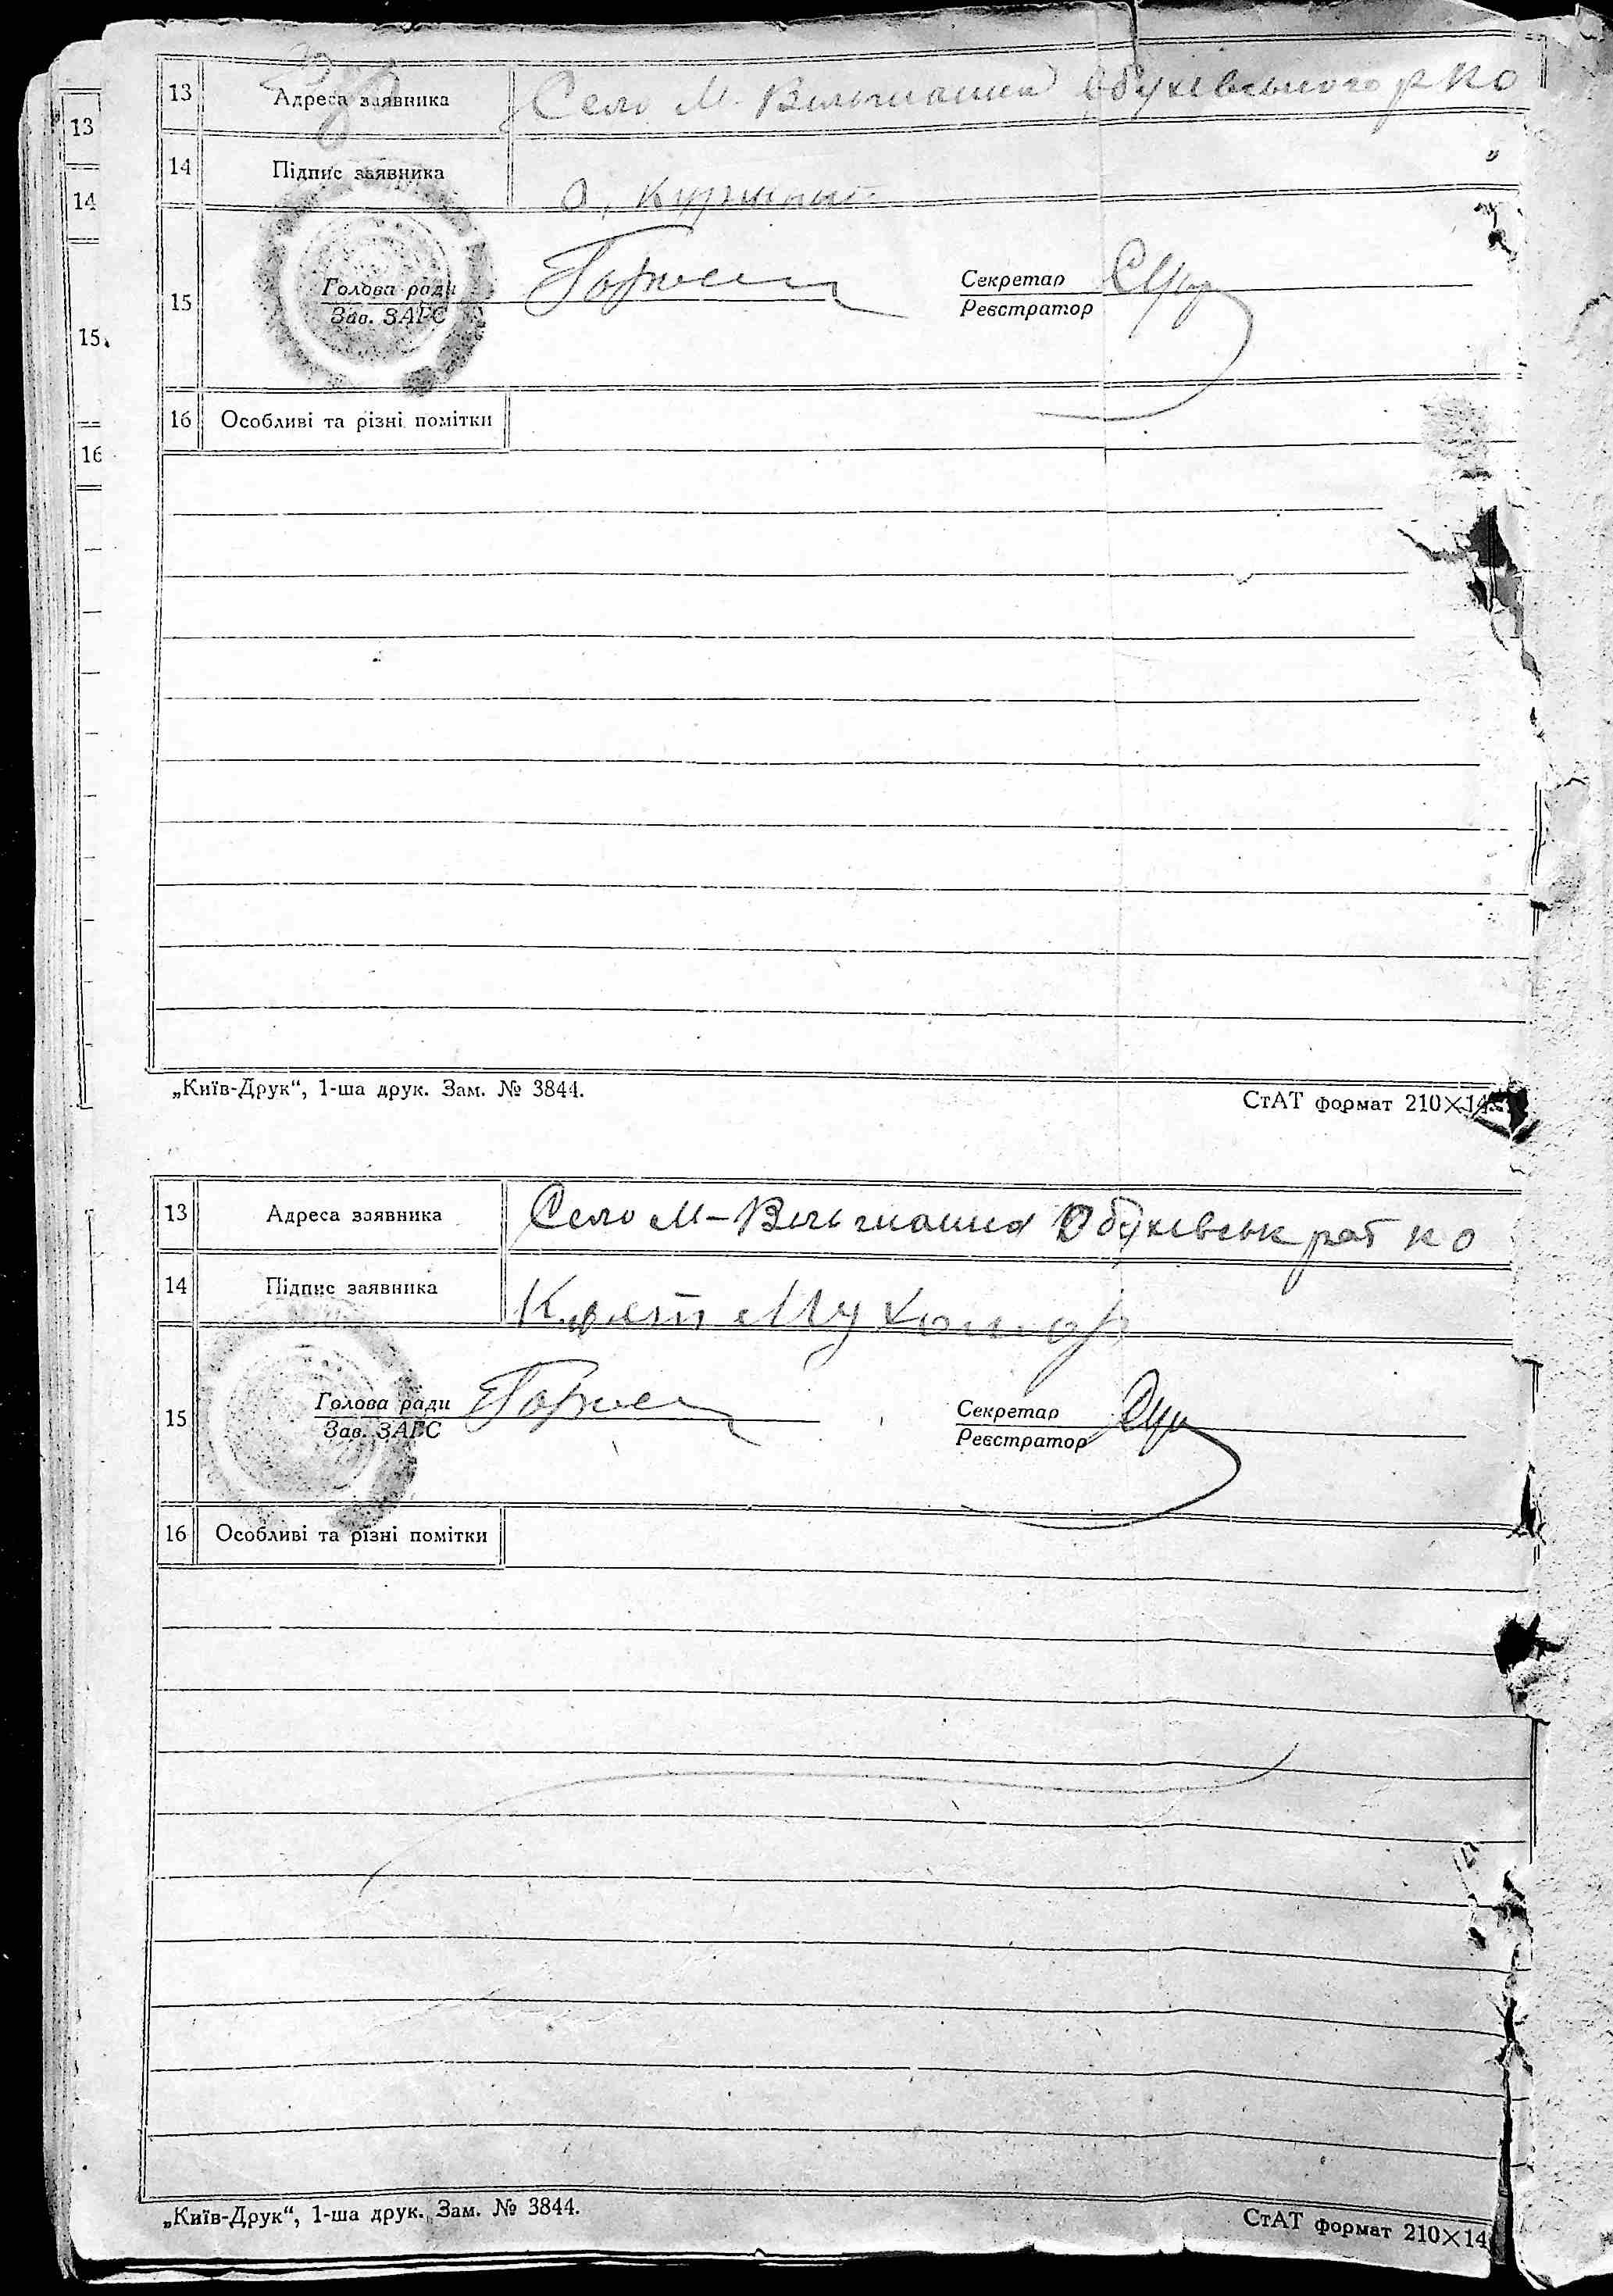 13 Адреса заявника Село М. Вільшанка Обухівського р КО
14 Підпис заявника О.
15 Голова ради Секретар
Зав. ЗАГС Реєстратор
16 Особливі та різні помітки
„Київ-Друк“, 1-ша друк. Зам. № 3844.
СтАТ формат 210×14
13 Адреса заявника Село М-Вільшанка Обухівськ рай КО
14 Підпис заявника
15 Голова ради Секретар
Зав. ЗАГС Реєстратор
16 Особливі та різні помітки
„Київ-Друк“, 1-ша друк. Зам. № 3844.
СтАТ формат 210×14
13
14
15
16